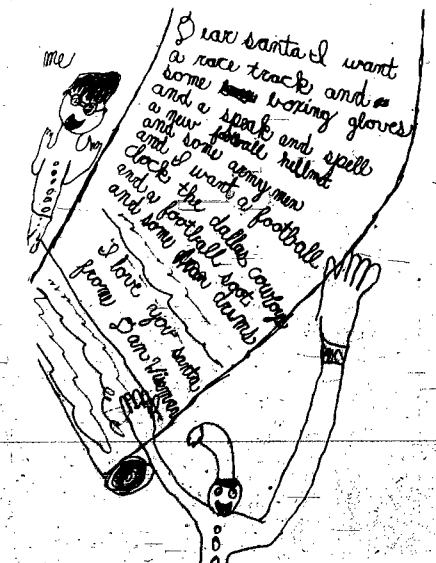 me
Dear santa I want
a race track and a
some boxing gloves
and a speak and spell
a new football hellmet
and some army men
and I want a football
clock the dallas cowboys
and a football sqot.
and some drums
I love you santa
from Dan Wiseman